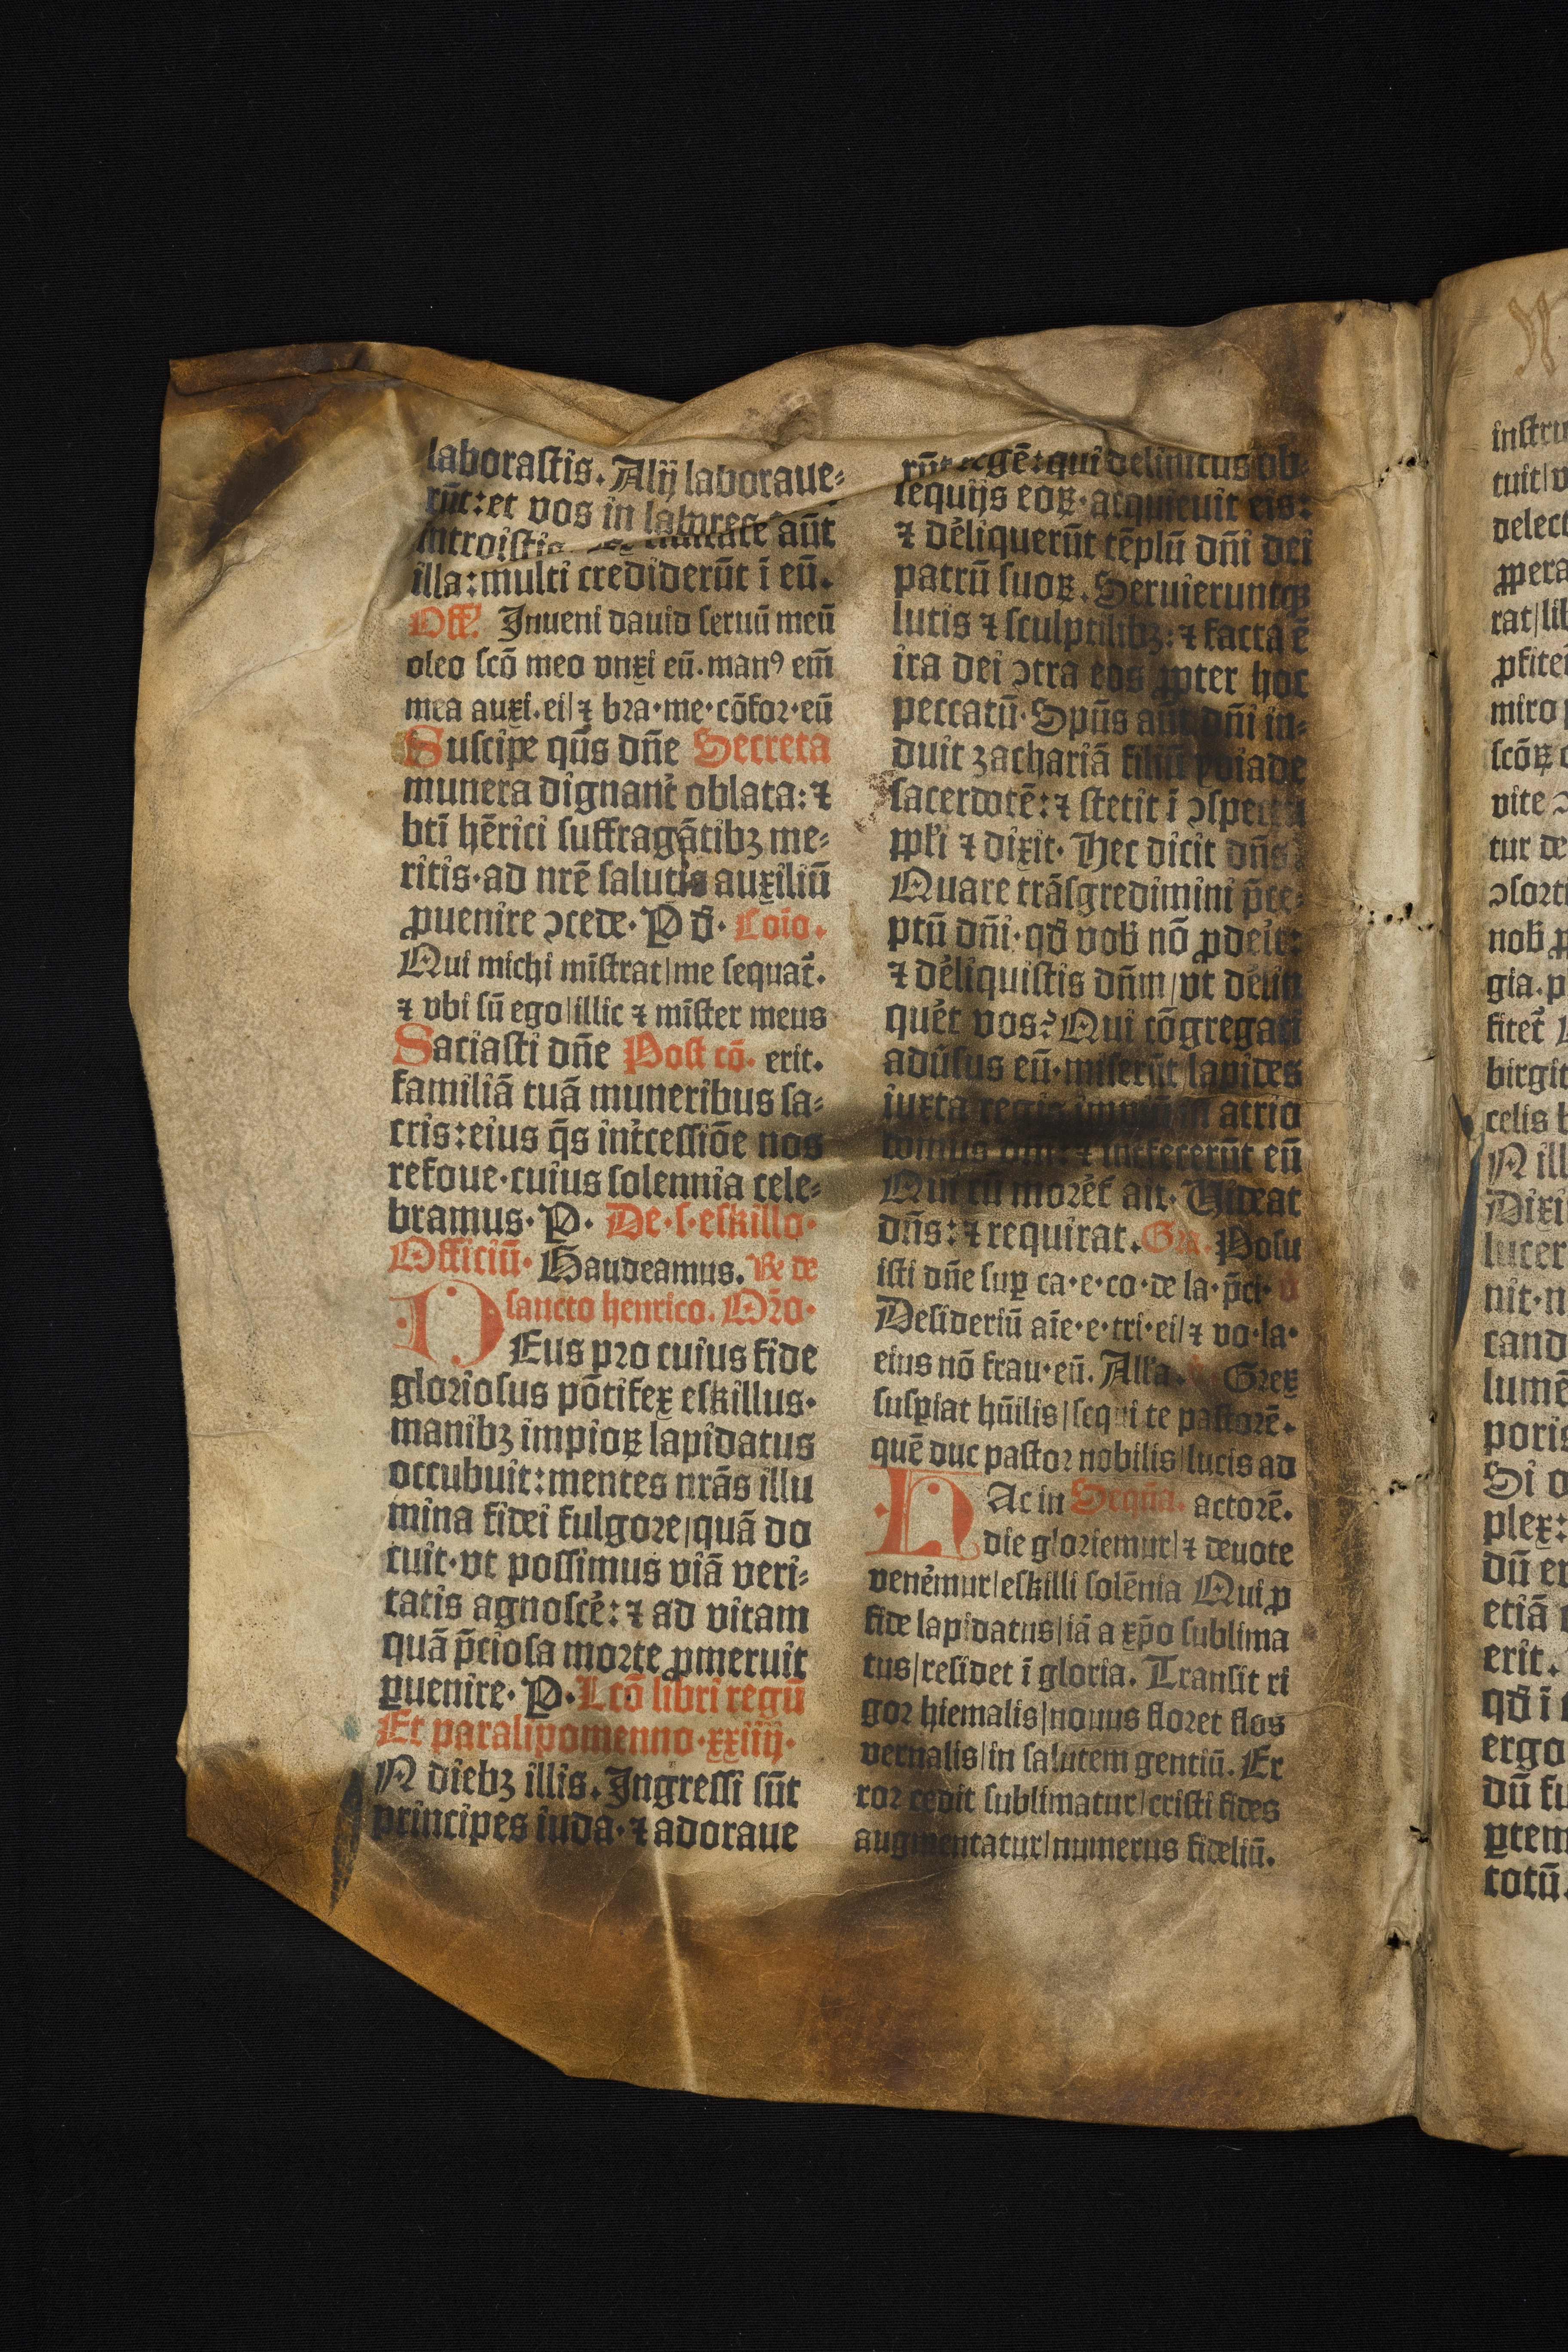 laborastis. Alij laboraue⸗
rūt: et vos in labores
introistis aūt
illa: multi crediderūt ī eū.
Off. Inueni dauid seruū meū
oleo scō meo vnxi eū. manꝰ em̄
mea auxi. ei / ⁊ bra·me·cōfor·eū
Suscipe qūs dn̄e Secreta
munera dignant̉ oblata: ⁊
bti̅ hērici suffragātibꝫ me⸗
ritis·ad nrē salutis auxiliū
ꝓuenire ↄcede· P d̄· Coīo.
Qui michi mīstrat / me sequat̉.
⁊ vbi sū ego / illic ⁊ mīster meus
Saciasti dn̄e Post cō· erit.
familiā tuā muneribus sa⸗
cris: eius q̄s int̉cessiōe nos
refoue·cuius solennia cele⸗
bramus· P· De·s·eskillo·
Officiū· Gaudeamus. Re de
sancto henrico. Orō·
DEus pro cuius fide
gloriosus pōtifex eskillus·
manibꝫ impioꝝ lapidatus
occubuit: mentes nrās illu
mina fidei fulgore / quā do
cuit·vt possimus viā veri⸗
tatis agnoscē̉: ⁊ ad vitam
quā p̄ciosa morte ꝓmeruit
ꝑuenire· P· Lcō libri regū
Et paralipomenno·xxiiij·
N diebꝫ illis. Ingressi sūt
principes iuda·⁊ adoraue
rūt regē: qui delinitus ob⸗
sequijs eoꝝ·acquieuit eis:
⁊ dēliquerūt tēplū dn̄i dei
patrū suoꝝ. Seruieruntqꝫ
lucis ⁊ sculptilibꝫ: ⁊ facta ē
ira dei ↄtra eos ꝓpter hoc
peccatū· Spūs aūt dn̄i in⸗
duit zachariā filiū yoiade
sacerdotē: ⁊ stetit ī ↄspectu
ppl̄i ⁊ dixit· Hec dicit dn̄s:
Quare trāsgredimini p̄ce⸗
ptū dn̄i·qd̄ vob̄ nō ꝓdeīt:
⁊ dēliquistis dn̄m / vt dēlīn
quēt vos? Qui cōgregati
adūsus eū·miserūt lapides
iuxta regis impiū ī atrio
domus dn̄i: ⁊ interfecerūt eū
Qui cū morēt̉ ait· Videat
dn̄s: ⁊ requirat. Gr. Posu
isti dn̄e suꝑ ca·e·co·de la·p̄ci· v̄
Desideriū aīe·e·tri·ei / ⁊ vo·la·
eius nō frau·eū. All'a. Grex
suspiat hūilis / sequi te pastorē.
quē duc pastor nobilis / lucis ad
HAc in Seqn̄a. actorē.
die gloriemur / ⁊ deuote
venēmur / eskilli solēnia Qui ꝓ
fide lapidatus / iā a xp̄o sublima
tus / residet ī gloria. Transit ri
gor hiemalis / nouus floret flos
vernalis / in salutem gentiū. Er
ror cedit sublimatur / cristi fides
augmentatur / numerus fideliū.
instru
tuit / v
delect
ꝓpera
rat / lib
ꝓfiter
miro
scōꝝ
vite
tur de
ↄsorti
nob̄ ꝓ
gia·p
fitet̉
birgit
celis
N ill
Dixi
lucer
nit·n
cand
lumē
poris
Si o
plex:
dū er
etiā
erit.
qd̄ ī
ergo
dū fu
ꝑtem
totū.